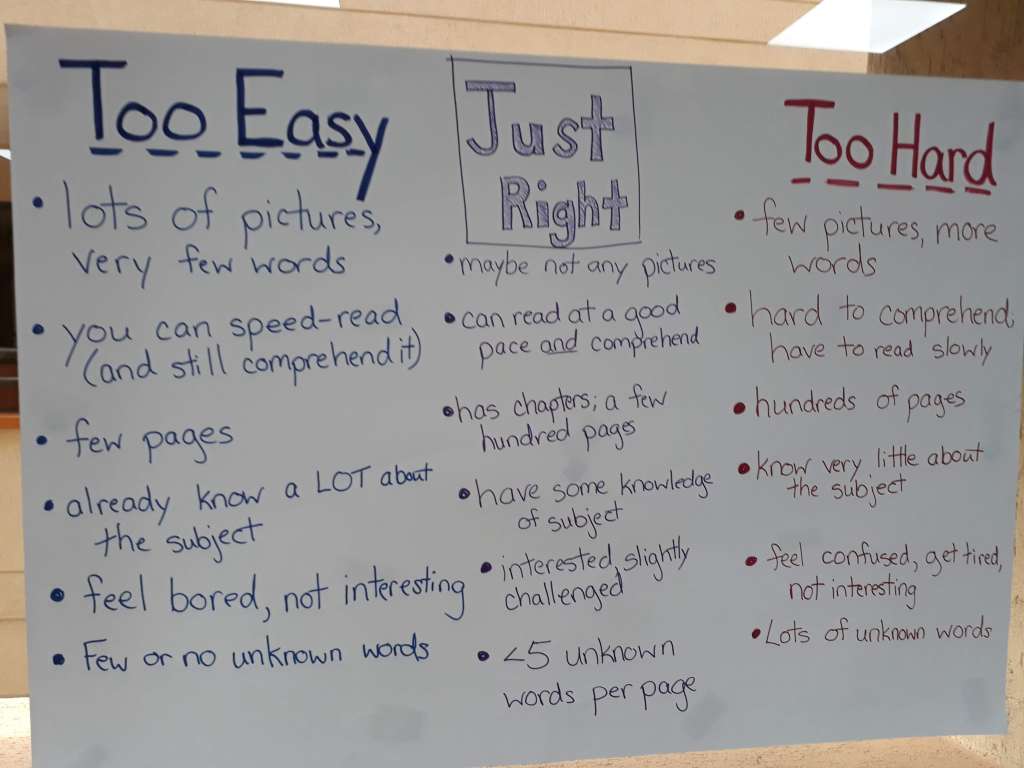 Too Easy
• lots of pictures,
very few words
• you can speed-read
(and still comprehend it)
• few pages
• already know a LOT about
the subject
• feel bored, not interesting
• Few or no unknown words
Just
Right
• maybe not any pictures
• can read at a good
pace and comprehend
• has chapters; a few
hundred pages
• have some knowledge
of subject
• interested, slightly
challenged
• <5 unknown
words per page
Too Hard
• few pictures, more
words
• hard to comprehend;
have to read slowly
• hundreds of pages
• know very little about
the subject
• feel confused, get tired,
not interesting
• Lots of unknown words